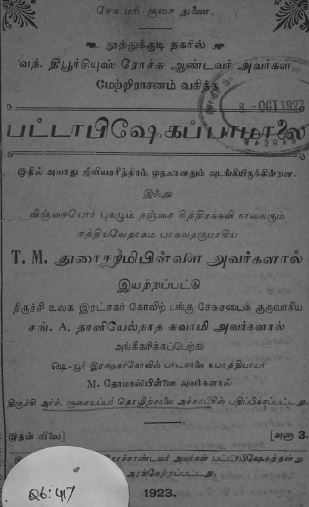 சேசு மரி சூசை துணை.
தூத்துக்குடி நகரில்
வந். திபூர்சியுஸ் ரோச்சு ஆண்டவர் அவர்கள்
மேற்றிராசனம் வகித்த
8 - OCT 1923
பட்டாபிஷேகப்பாமாலை
இதில் அவரது ஜீவியசரித்திரம் முதலானதும் அடங்கியிருக்கின்றன.
இஃது
விஞ்சையோர் புகழும் தஞ்சை சித்திரகவி நாவலரும்
சத்தியவேதாகம பாகவதருமாகிய
T. M. துரைச்சாமிபிள்ளை அவர்களால்
இயற்றப்பட்டு
திருச்சி உலக இரட்சகர் கோவிற் பங்கு சேசுசபைக் குருவாகிய
சங். A. தானியேல்நாத சுவாமி அவர்களால்
அங்கீகரிக்கப்பெற்று
இரக்ஷகர்கோவில் பாடசாலை உபாத்தியாயர்
M. தோமாஸ்பிள்ளை அவர்களால்
திருச்சி அர்ச். சூசையப்பர் தொழிற்சாலை அச்சாபீசில் பதிப்பிக்கப்பட்டது.
இதன் விலை] [அணா 3.
ரோச்சாண்டவர் அவர்கள் பட்டாபிஷேகத்தன்று
அரங்கேற்றப்பட்டது.
1923.